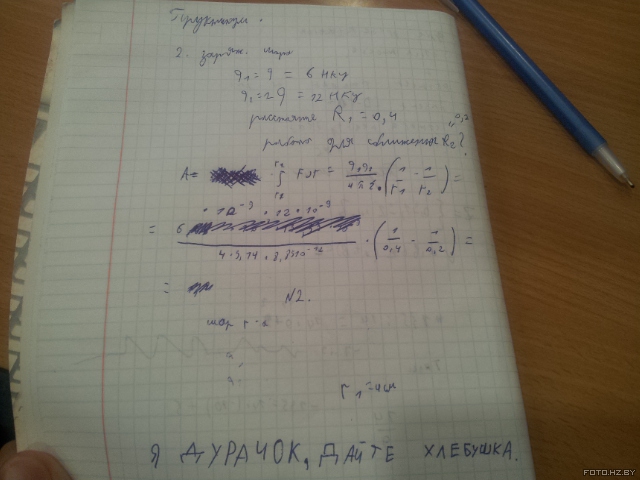 2. заряж. шара
q₁ = q = 6 нКу
q₂ = 2q = 12 нКу
R₁ = 0,4
работа для сближения R₂?
A = ∫ F dr = q₁q₂ / 4πε₀ (1/r₁ - 1/r₂) =
= 6 · 10⁻⁹ · 12 · 10⁻⁹ / 4 · 3,14 · 8,85·10⁻¹² · (1/0,4 - 1/0,2) =
=
N2.
шар
r₁ = 4см
Я ДУРАЧОК, ДАЙТЕ ХЛЕБУШКА.
FOTO.HZ.BY